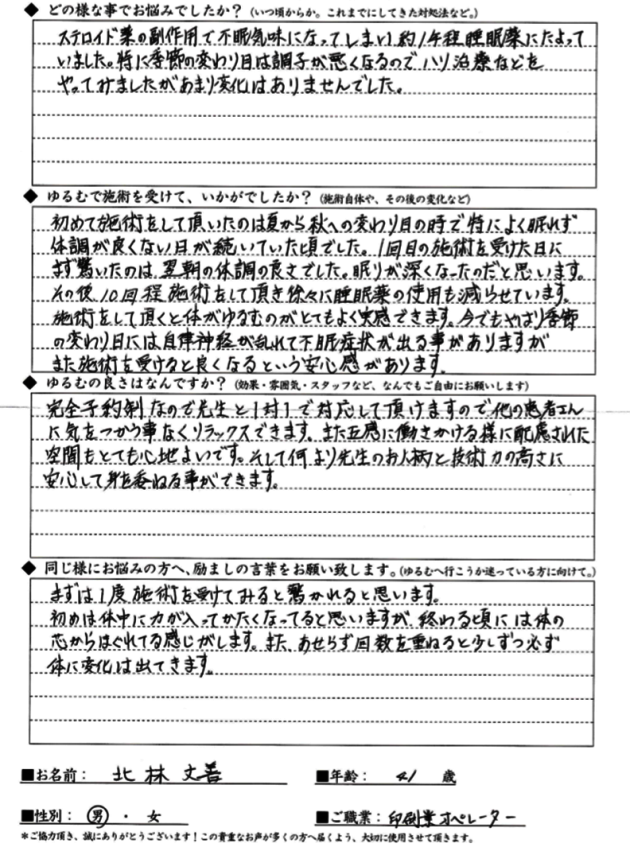 ◆ どの様な事でお悩みでしたか？（いつ頃からか。これまでにしてきた対処法など。）
ステロイド薬の副作用で不眠気味になってしまい約1年程睡眠薬にたよって
いました。特に季節の変わり目は調子が悪くなるのでハリ治療などを
やってみましたがあまり変化はありませんでした。
◆ ゆるむで施術を受けて、いかがでしたか？（施術自体や、その後の変化など）
初めて施術をして頂いたのは夏から秋への変わり目の時で特によく眠れず
体調が良くない日が続いていた頃でした。1回目の施術を受けた日に
まず驚いたのは、翌朝の体調の良さでした。眠りが深くなったのだと思います。
その後10回程施術をして頂き徐々に睡眠薬の使用も減らせています。
施術をして頂くと体がゆるむのがとてもよく実感できます。今でもやはり季節
の変わり目には自律神経が乱れて不眠症状が出る事がありますが
また施術を受けると良くなるという安心感があります。
◆ ゆるむの良さはなんですか？（効果・雰囲気・スタッフなど、なんでもご自由にお願いします）
完全予約制なので先生と1対1で対応して頂けますので他の患者さん
に気をつかう事なくリラックスできます。また五感に働きかける様に配慮された
空間もとても心地よいです。そして何より先生のお人柄と技術力の高さに
安心して身を委ねる事ができます。
◆ 同じ様にお悩みの方へ、励ましの言葉をお願い致します。（ゆるむへ行こうか迷っている方に向けて。）
まずは1度施術を受けてみると驚かれると思います。
初めは体中に力が入ってかたくなってると思いますが、終わる頃には体の
芯からほぐれてる感じがします。また、あせらず回数を重ねると少しずつ必ず
体に変化は出てきます。
■お名前： 北林 文善 ■年齢： 41 歳
■性別： 男 ・ 女 ■ご職業： 印刷業オペレーター
＊ご協力頂き、誠にありがとうございます！この貴重なお声が多くの方へ届くよう、大切に使用させて頂きます。